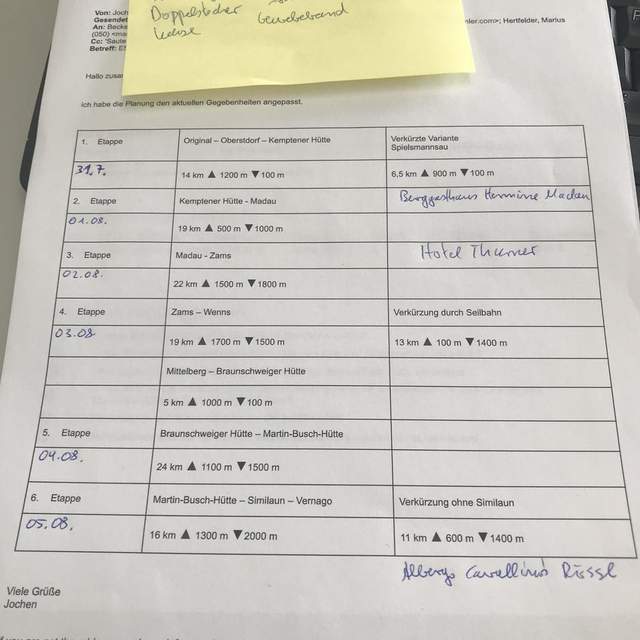 Doppelstöcker
Gewebeband
Von: Joch
Gesendet
An: Becke
ler.com>; Hertfelder, Marius
(050) <ma
Cc: 'Saute
Betreff: E5
Hallo zusa
ich habe die Planung den aktuellen Gegebenheiten angepasst.
1. Etappe Original – Oberstdorf – Kemptener Hütte Verkürzte Variante
Spielsmannsau
31.7. 14 km ▲ 1200 m ▼ 100 m 6,5 km ▲ 900 m ▼ 100 m
2. Etappe Kemptener Hütte - Madau Berggasthaus Hermine Madau
01.08. 19 km ▲ 500 m ▼ 1000 m
3. Etappe Madau - Zams Hotel Thurner
02.08. 22 km ▲ 1500 m ▼ 1800 m
4. Etappe Zams – Wenns Verkürzung durch Seilbahn
03.08 19 km ▲ 1700 m ▼ 1500 m 13 km ▲ 100 m ▼ 1400 m
Mittelberg – Braunschweiger Hütte
5 km ▲ 1000 m ▼ 100 m
5. Etappe Braunschweiger Hütte – Martin-Busch-Hütte
04.08. 24 km ▲ 1100 m ▼ 1500 m
6. Etappe Martin-Busch-Hütte – Similaun – Vernago Verkürzung ohne Similaun
05.08. 16 km ▲ 1300 m ▼ 2000 m 11 km ▲ 600 m ▼ 1400 m
Albergo
Viele Grüße
Jochen